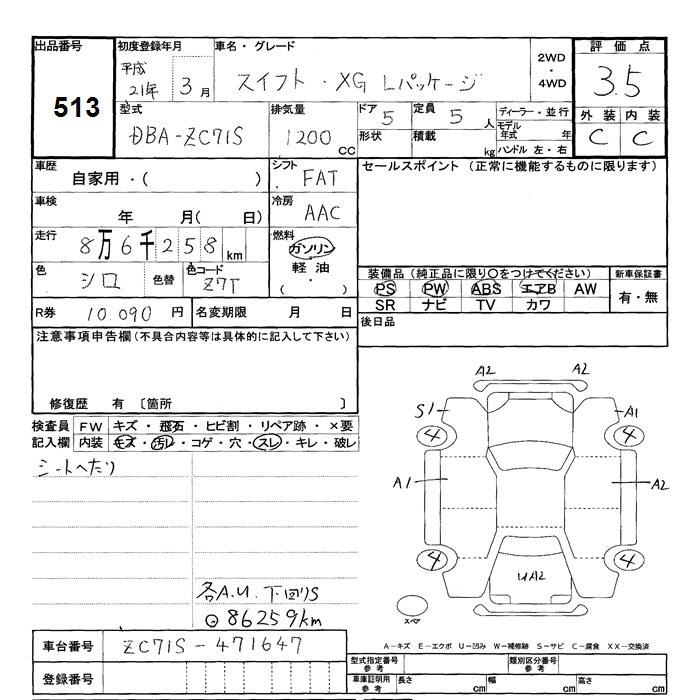 出品番号
513
初度登録年月
平成
21年 3月
車名・グレード
スイフト・XG Lパッケージ
2WD
・
4WD
評価点
3.5
外装 内装
C C
型式
DBA-ZC71S
排気量
1200 CC
ドア 5
定員 5 人
形状
積載 kg
ディーラー・並行
モデル年式 年
ハンドル 左・右
車歴
自家用・( )
シフト
FAT
セールスポイント (正常に機能するものに限ります)
車検
年 月( 日)
冷房
AAC
走行
8万6千258km
燃料
ガソリン
軽油
( ・ )
色
シロ
色替
色コード
Z7T
装備品(純正品に限り○をつけてください)
新車保証書
PS PW ABS エアB AW
有・無
SR ナビ TV カワ
R券 10.090 円
名変期限 月 日
後日品
注意事項申告欄(不具合内容等は具体的に記入して下さい)
修復歴 有 〔箇所 〕
検査員
記入欄
FW キズ・飛石・ヒビ割・リペア跡・×要
内装 キズ・汚レ・コゲ・穴・スレ・キレ・破レ
シートへたり
A2 A2
S1 A1
4 4
A1 A2
4 4
UA2
スペア
各A.U. 下回りS
86259km
A-キズ E-エクボ U-凹み W-補修跡 S-サビ C-腐食 XX-交換済
車台番号
ZC71S-471647
登録番号
型式指定番号
参考
類別区分番号
参考
車庫証明用
参考
長さ cm
幅 cm
高さ cm